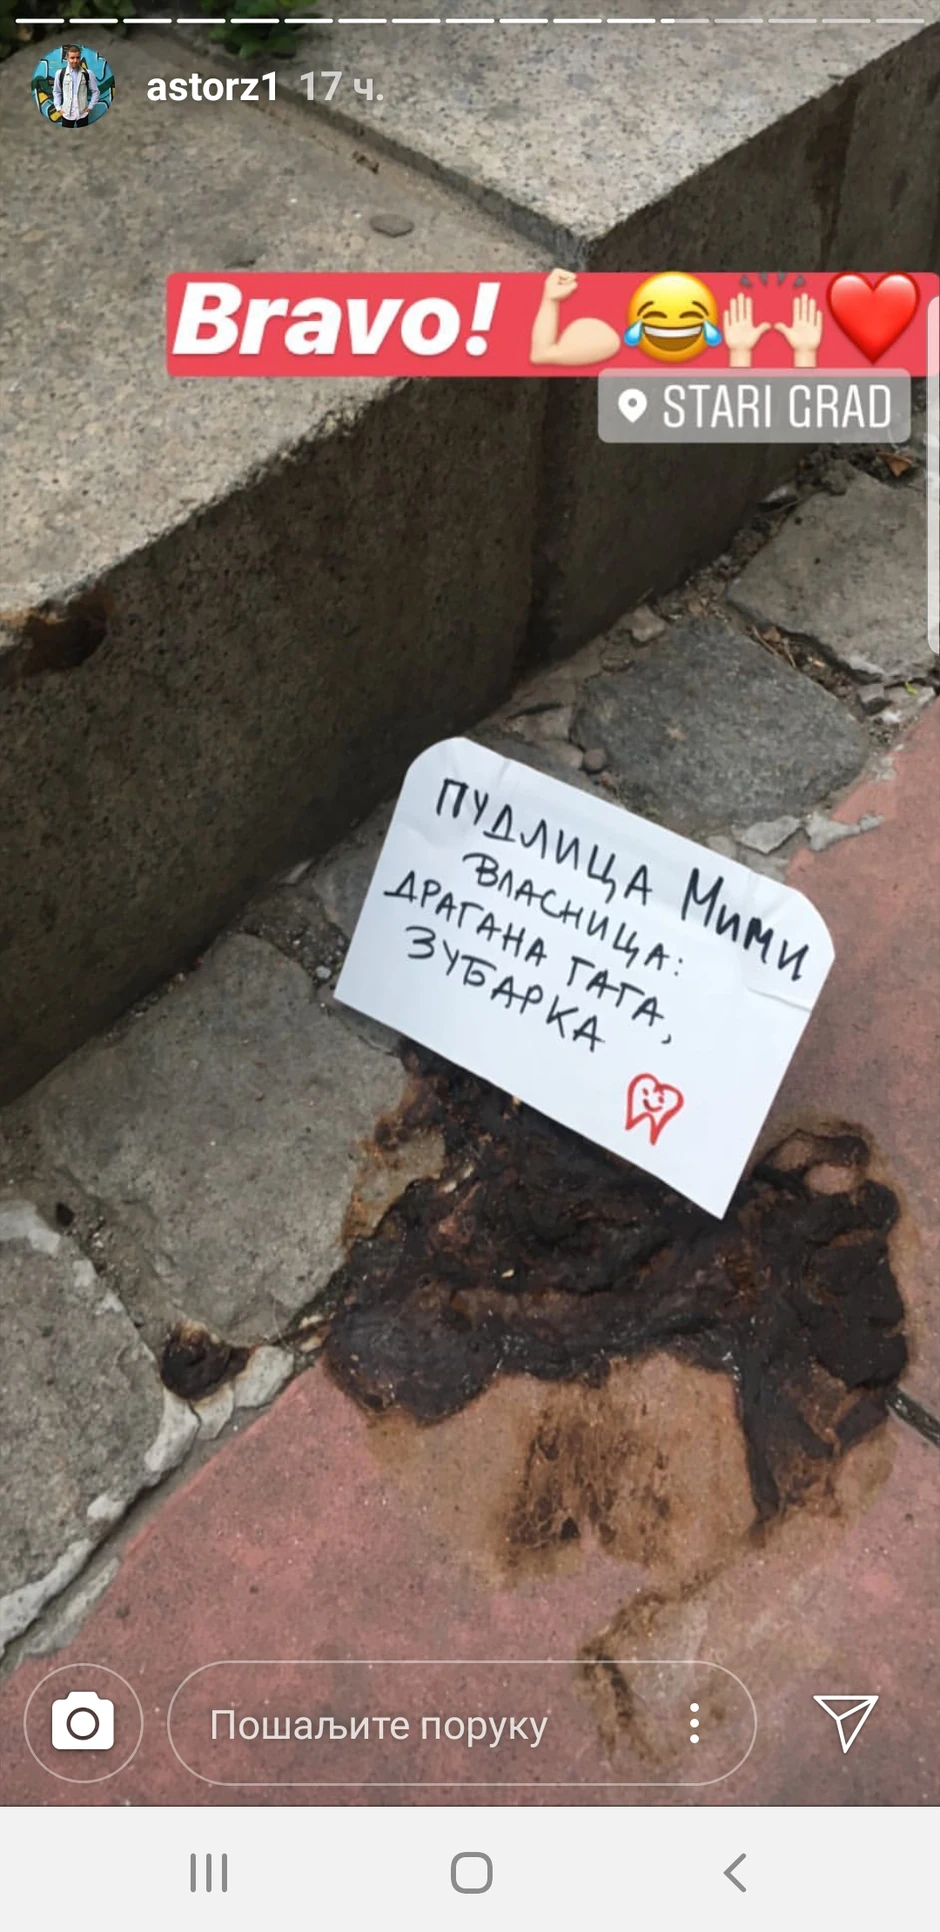 astorz1 17 ч.
Bravo!
STARI GRAD
ПУДЛИЦА МИМИ
ВЛАСНИЦА:
ДРАГАНА ГАГА,
ЗУБАРКА
Пошаљите поруку